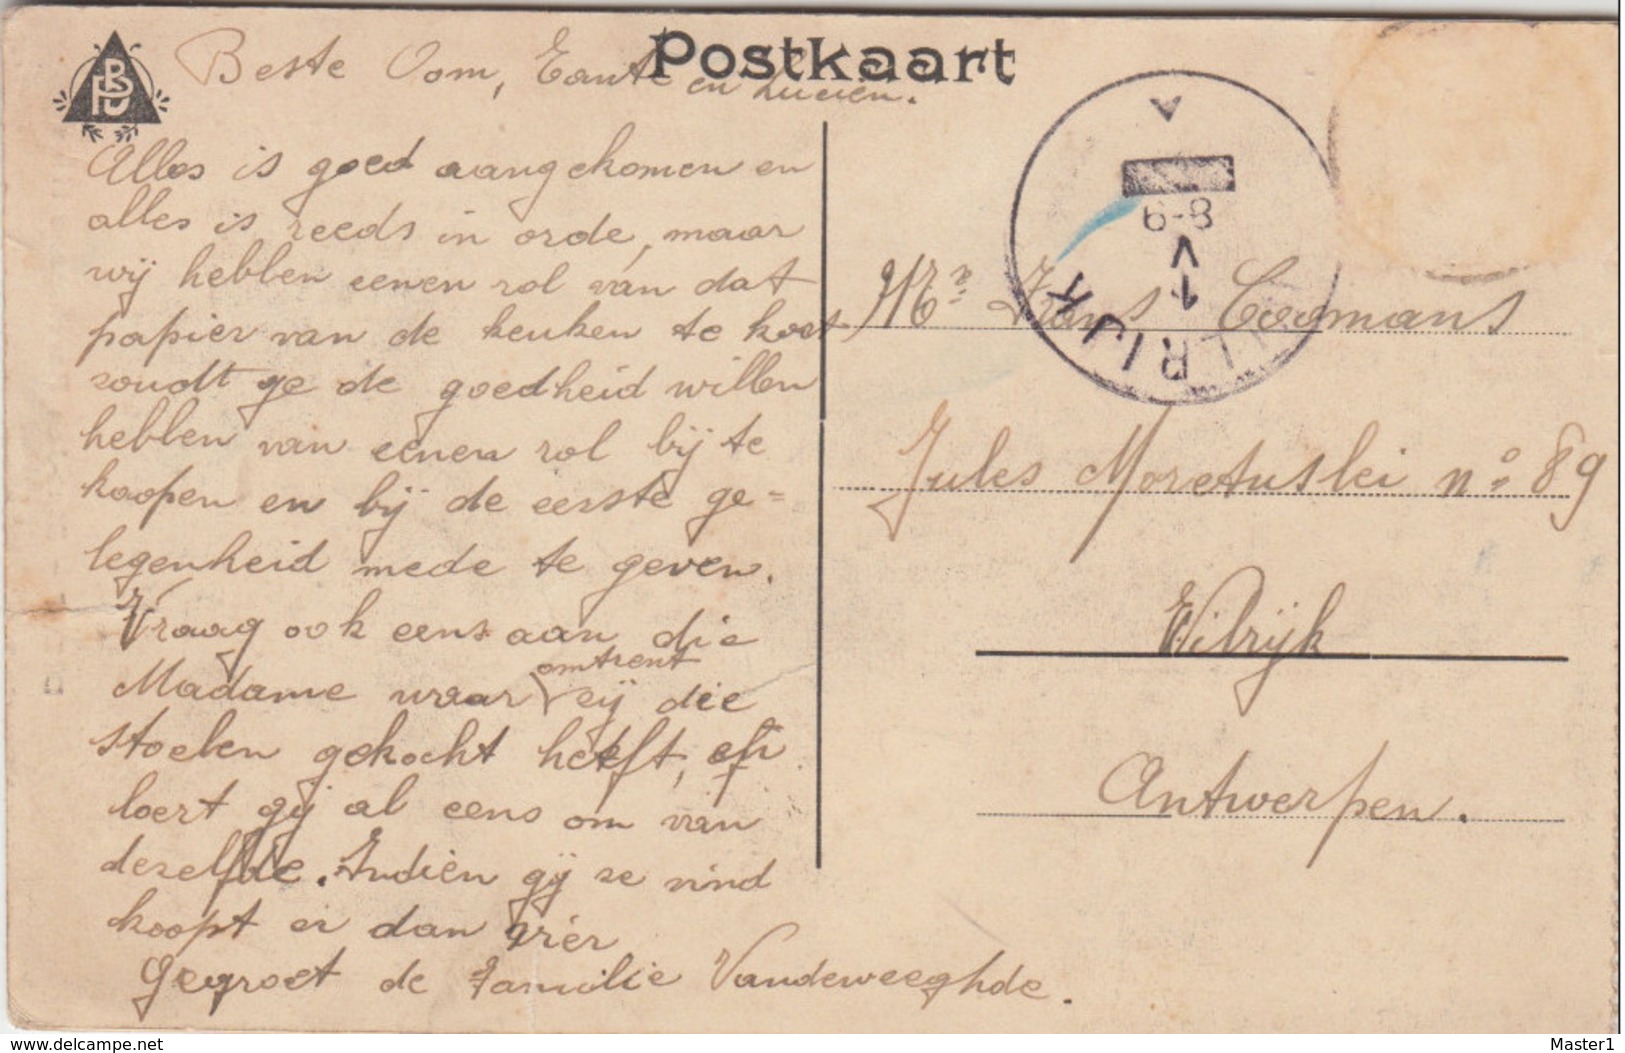 Postkaart
Beste Oom, Tante en Lucien.
Alles is goed aangekomen en
alles is reeds in orde, maar
wij hebben eenen rol van dat
papier van de keuken te kort
zoudt ge de goedheid willen
hebben van eenen rol bij te
koopen en bij de eerste ge=
legenheid mede te geven.
Vraag ook eens aan die
Madame waar omtrent zij die
stoelen gekocht heeft, en
loert gij al eens om van
dezelfde. Indien gij ze vind
koopt er dan vier
Gegroet de Familie Vandeweeghde.
Mr. Frans Coomans
Jules Moretuslei no 89
Wilrijk
Antwerpen.
RIJK
1 V
8-9
A
PBJ
delcampe.net
Master1